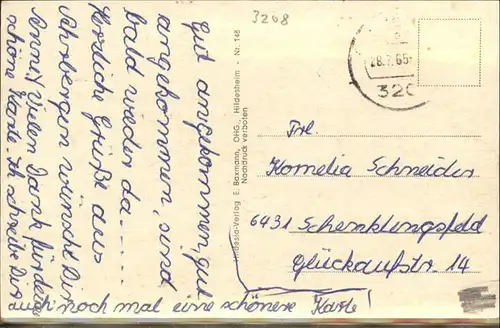 3208
28.7.65
320
Gut angekommen, gut
angekommen, sind
bald wieder da....
Herzliche Grüße aus
wünscht Dir
Anne! Vielen Dank für die
schöne Karte. Ich schreibe Dir
auch noch mal eine schönere Karte!
Verlag E. Baxmann, OHG., Hildesheim - Nr. 146
Nachdruck verboten
Frl.
Kornelia Schneider
6431 Schenklengsfeld
Glückaufstr. 14